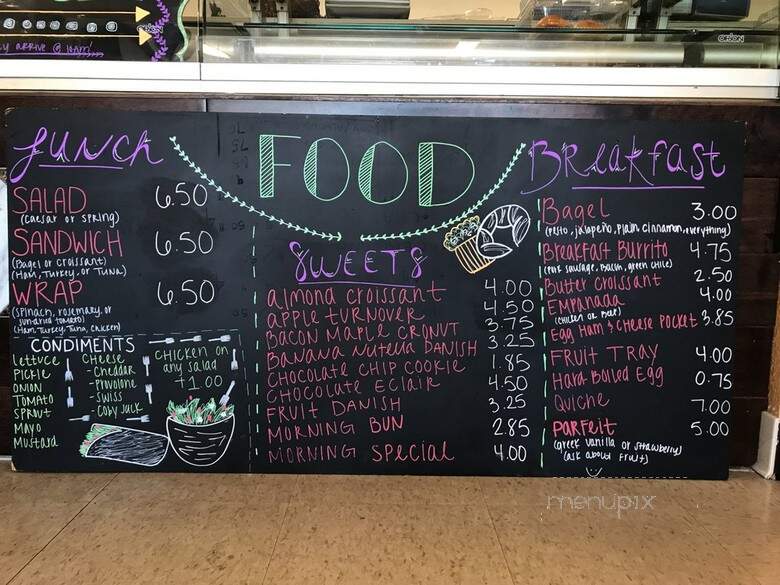 y arrive @ 10am!
ORION
Lunch
SALAD 6.50
(Caesar or Spring)
SANDWICH 6.50
(Bagel or Croissant)
(Ham, Turkey, or Tuna)
WRAP 6.50
(Spinach, rosemary, or
sun dried tomato)
(Ham, Turkey, Tuna, Chicken)
CONDIMENTS
lettuce
Pickle
Onion
Tomato
Sprout
Mayo
Mustard
Cheese
- Cheddar
- Provolone
- Swiss
- Coby Jack
Chicken on
any salad
+1.00
FOOD
SWEETS
almond croissant 4.00
apple turnover 4.50
Bacon Maple Cronut 3.75
Banana Nutella Danish 3.25
Chocolate Chip Cookie 1.85
Chocolate Eclair 4.50
Fruit Danish 3.25
Morning Bun 2.85
Morning Special 4.00
Breakfast
Bagel 3.00
(Pesto, jalapeño, Plain, Cinnamon, everything)
Breakfast Burrito 4.75
(sausage, Bacon, green chile)
Butter Croissant 2.50
Empanada 4.00
(Chicken or Beef)
Egg Ham & Cheese Pocket 3.85
Fruit Tray 4.00
Hard Boiled Egg 0.75
Quiche 7.00
Parfeit 5.00
(greek vanilla or strawberry)
(ask about fruit)
menupix